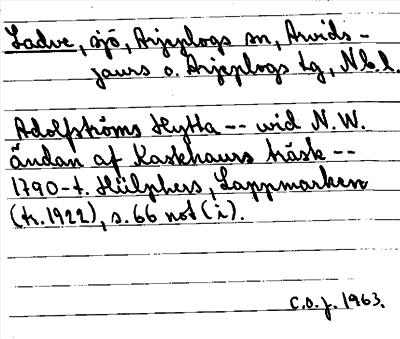 Ladve, sjö, Arjeplogs sn, Arvids-
jaurs o. Arjeplogs tg, Nb.l.
Adolfströms Hytta -- wid N.W.
ändan af Kaskhaurs träsk --
1790-t. Hülphers, Lappmarken
(tr. 1922), s. 66 not (i).
C.O.J. 1963.